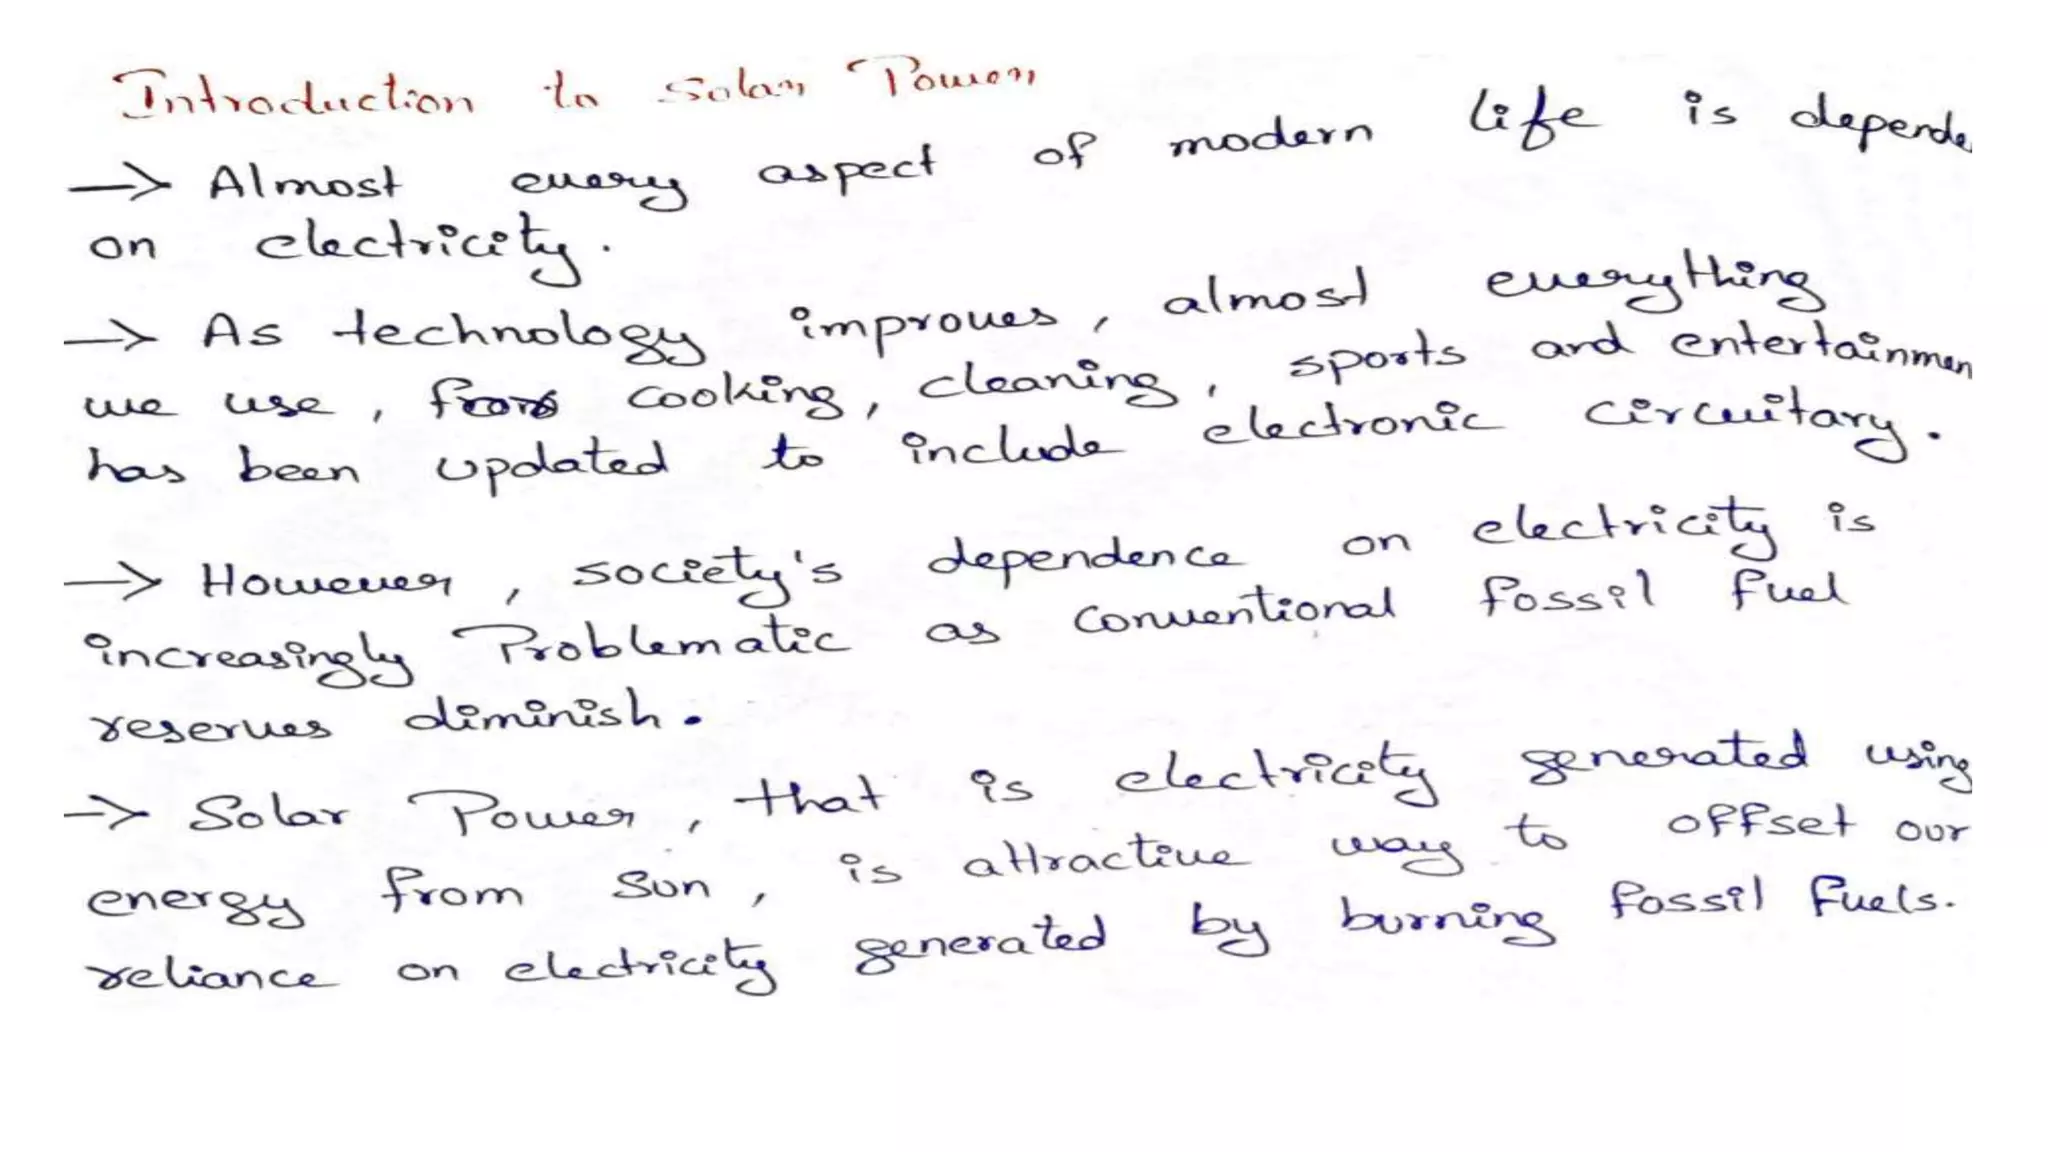 Introduction to Solar Power
→ Almost every aspect of modern life is depende
on electricity.
→ As technology improves, almost everything
we use, from cooking, cleaning, sports and entertainmen
has been updated to include electronic circuitary.
→ However, society's dependence on electricity is
increasingly Problematic as conventional fossil fuel
reserves diminish.
→ Solar Power, that is electricity generated using
energy from sun, is attractive way to offset our
reliance on electricity generated by burning fossil fuels.